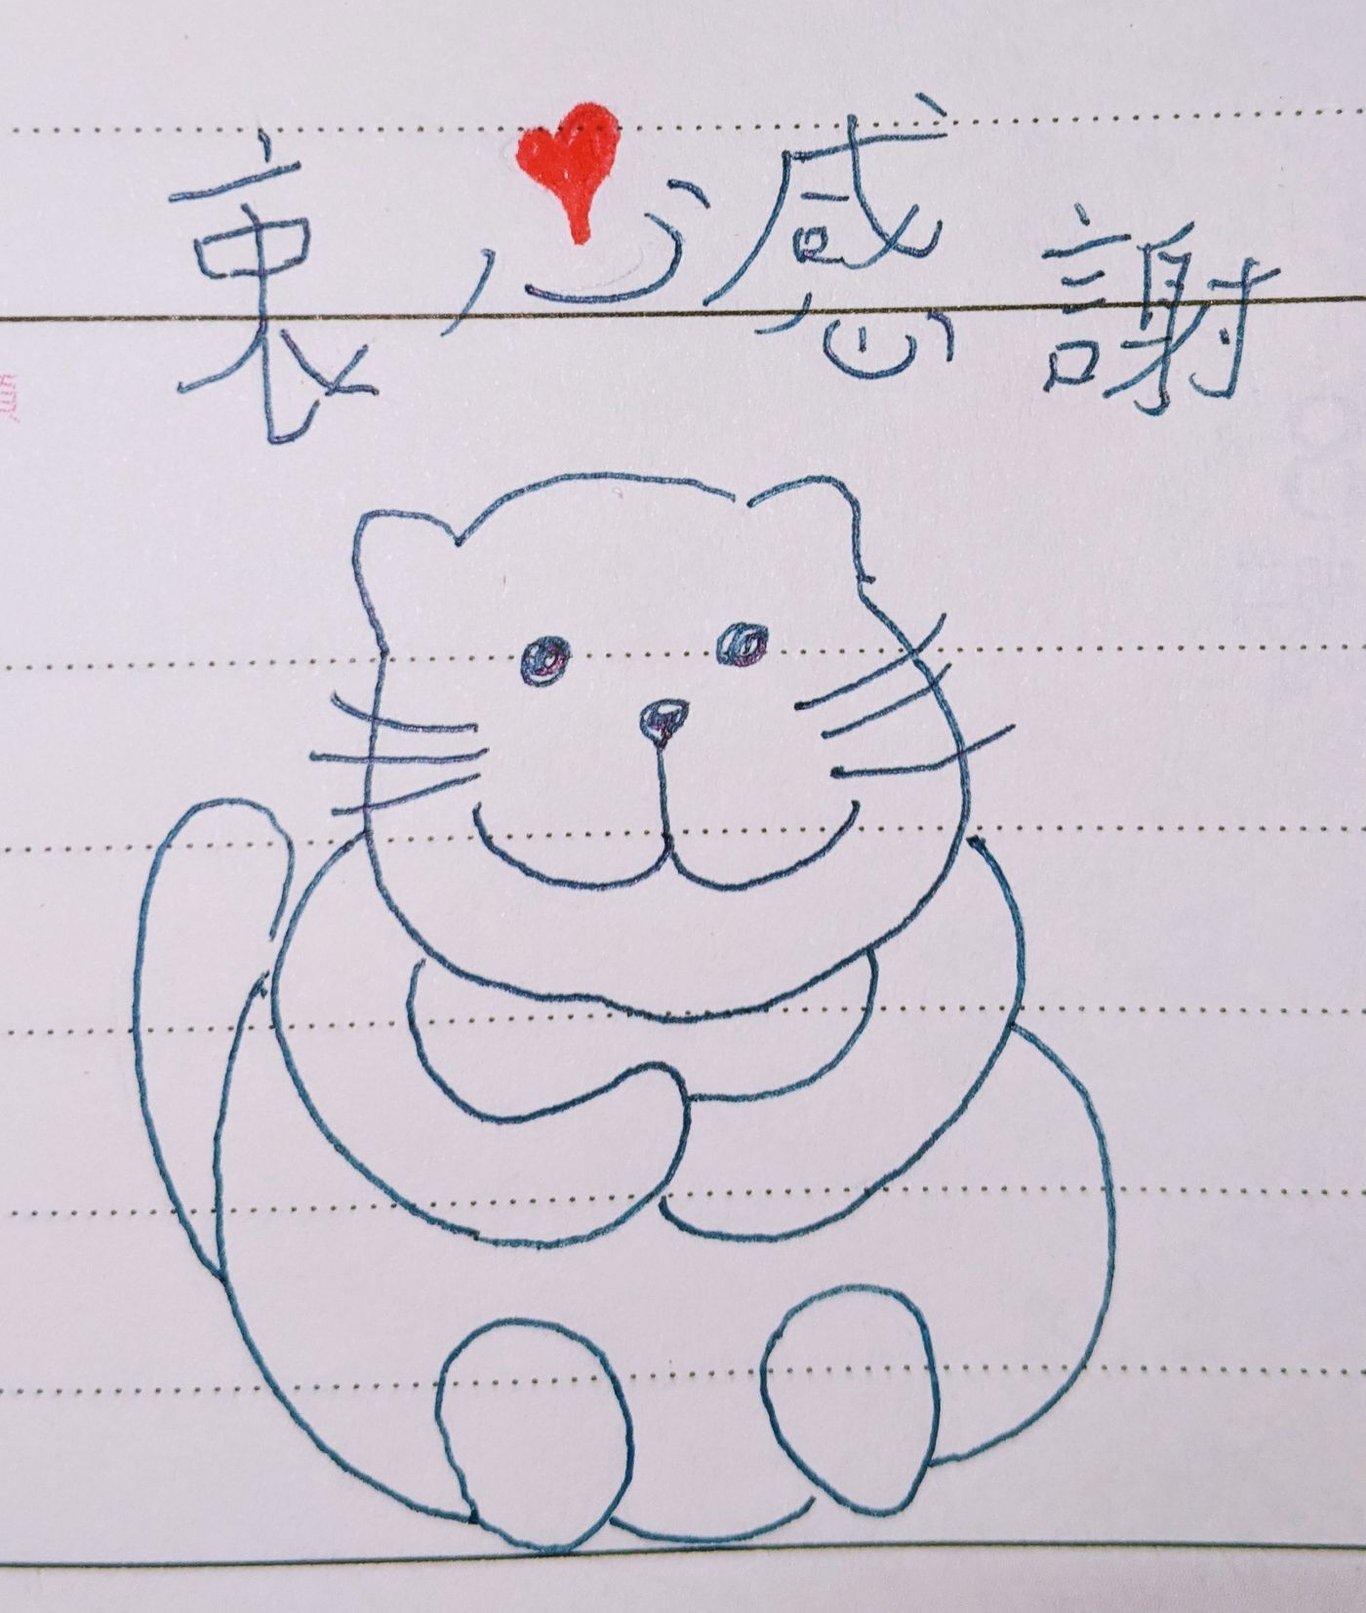 衷心感謝